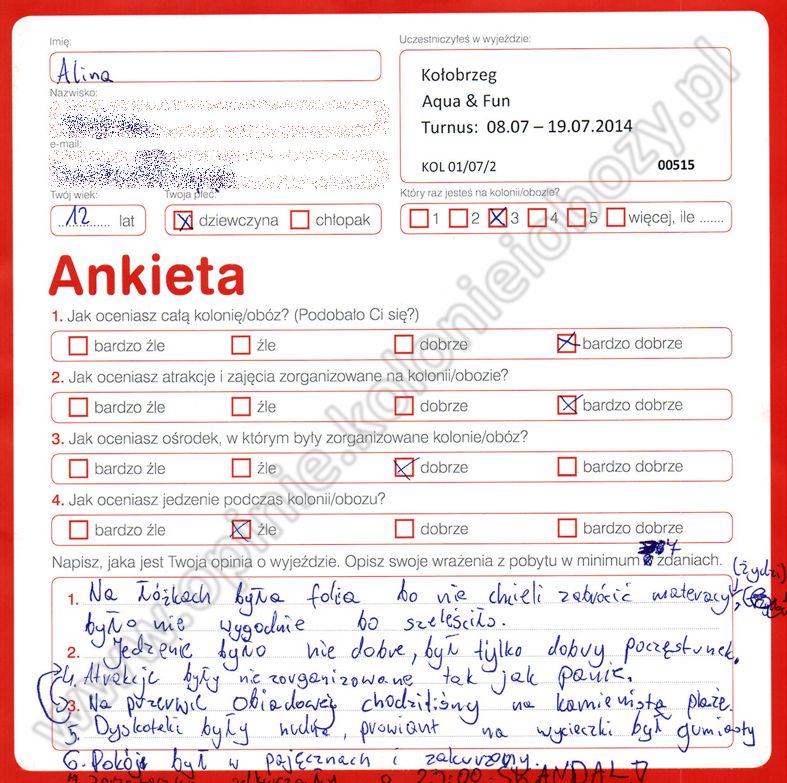 Imię:
Alina
Nazwisko:
e-mail:
Twój wiek:
12 lat
Twoja płeć:
dziewczyna chłopak
Uczestniczyłeś w wyjeździe:
Kołobrzeg
Aqua & Fun
Turnus: 08.07 – 19.07.2014
KOL 01/07/2 00515
Który raz jesteś na kolonii/obozie?
1 2 3 4 5 więcej, ile .......
Ankieta
1. Jak oceniasz całą kolonię/obóz? (Podobało Ci się?)
bardzo źle źle dobrze bardzo dobrze
2. Jak oceniasz atrakcje i zajęcia zorganizowane na kolonii/obozie?
bardzo źle źle dobrze bardzo dobrze
3. Jak oceniasz ośrodek, w którym były zorganizowane kolonie/obóz?
bardzo źle źle dobrze bardzo dobrze
4. Jak oceniasz jedzenie podczas kolonii/obozu?
bardzo źle źle dobrze bardzo dobrze
Napisz, jaka jest Twoja opinia o wyjeździe. Opisz swoje wrażenia z pobytu w minimum 7 zdaniach.
(żydzi)
1. Na łóżkach była folia bo nie chcieli zabrócić materacy,
było nie wygodnie bo szeleściło.
2. Jedzenie było nie dobre, był tylko dobry poczęstunek.
4. Atrakcje były nie zorganizowane tak jak panie.
3. Na przerwie obiadowej chodziliśmy na kamienistą plażę.
5. Dyskoteki były nudne, prowiant na wycieczki był gumiasty
6. Pokój był w pajęcznach i zakurzony.
23:00 - SKANDAL
www.opinie.kolonieiobozy.pl